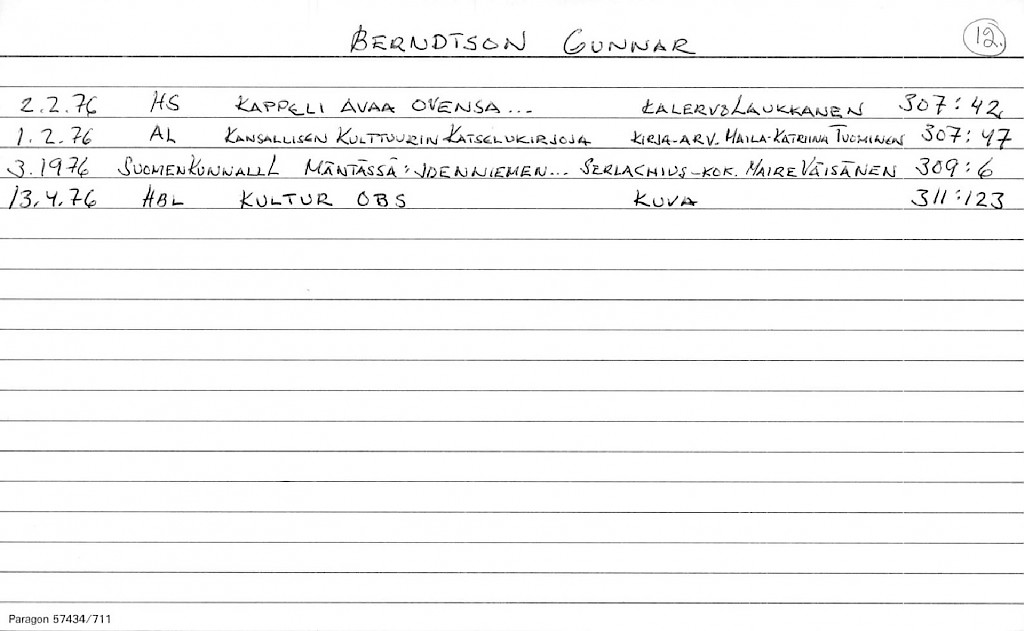 BERNDTSON GUNNAR 12.
2.2.76 HS KAPPELI AVAA OVENSA... KALERVO LAUKKANEN 307:42
1.2.76 AL KANSALLISEN KULTTUURIN KATSELUKIRJOJA KIRJA-ARV. MAILA-KATRIINA TUOMINEN 307:47
3.1976 SUOMEN KUNNALL L MÄNTÄSSÄ: JOENNIEMEN... SERLACHIUS-KOK. MAIRE VÄISÄNEN 309:6
13.4.76 HBL KULTUR OBS KUVA 311:123
Paragon 57434/711